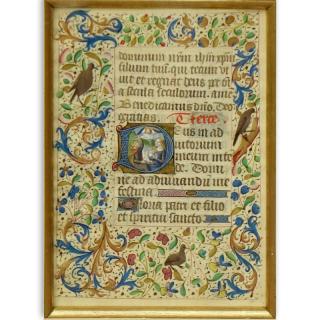 dominum nrm ihm xpm
filium tuu. qui tecum vi
uit et regnat deus per o
a secula seculorum. ame
Benedicamus dno. Deo
gratias. Tierce
Deus in ad
iutorium
meum inte
de. Domi
ne ad adiuuandu m
festina
Gloria patri et filio
et spiritui sancto